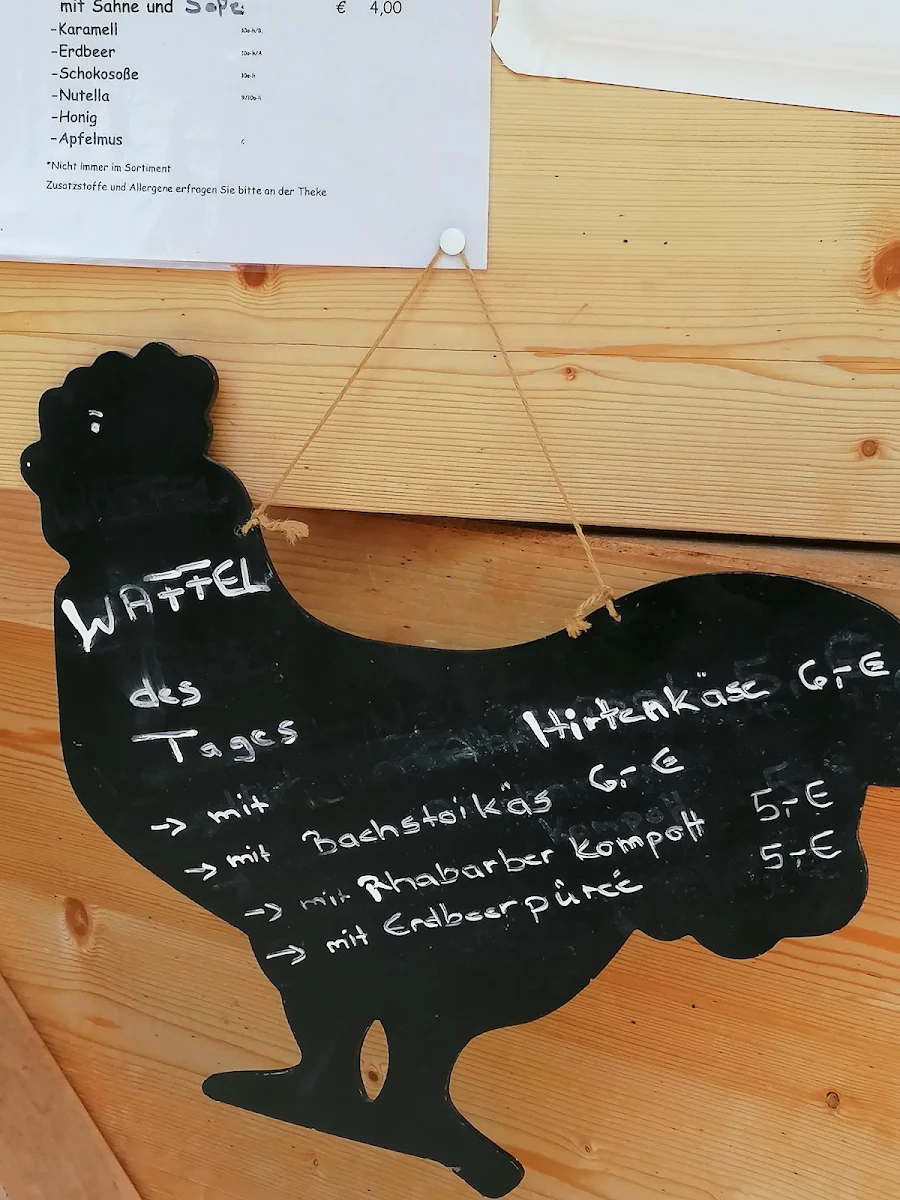 mit Sahne und Soße € 4,00
-Karamell
-Erdbeer
-Schokosoße
-Nutella
-Honig
-Apfelmus
*Nicht immer im Sortiment
Zusatzstoffe und Allergene erfragen Sie bitte an der Theke
WAFFEL
des
Tages
→ mit Hirtenkäse 6,-€
→ mit Bachstoikäs 6,- €
→ mit Rhabarber Kompott 5,-€
→ mit Erdbeerpüreé 5,-€